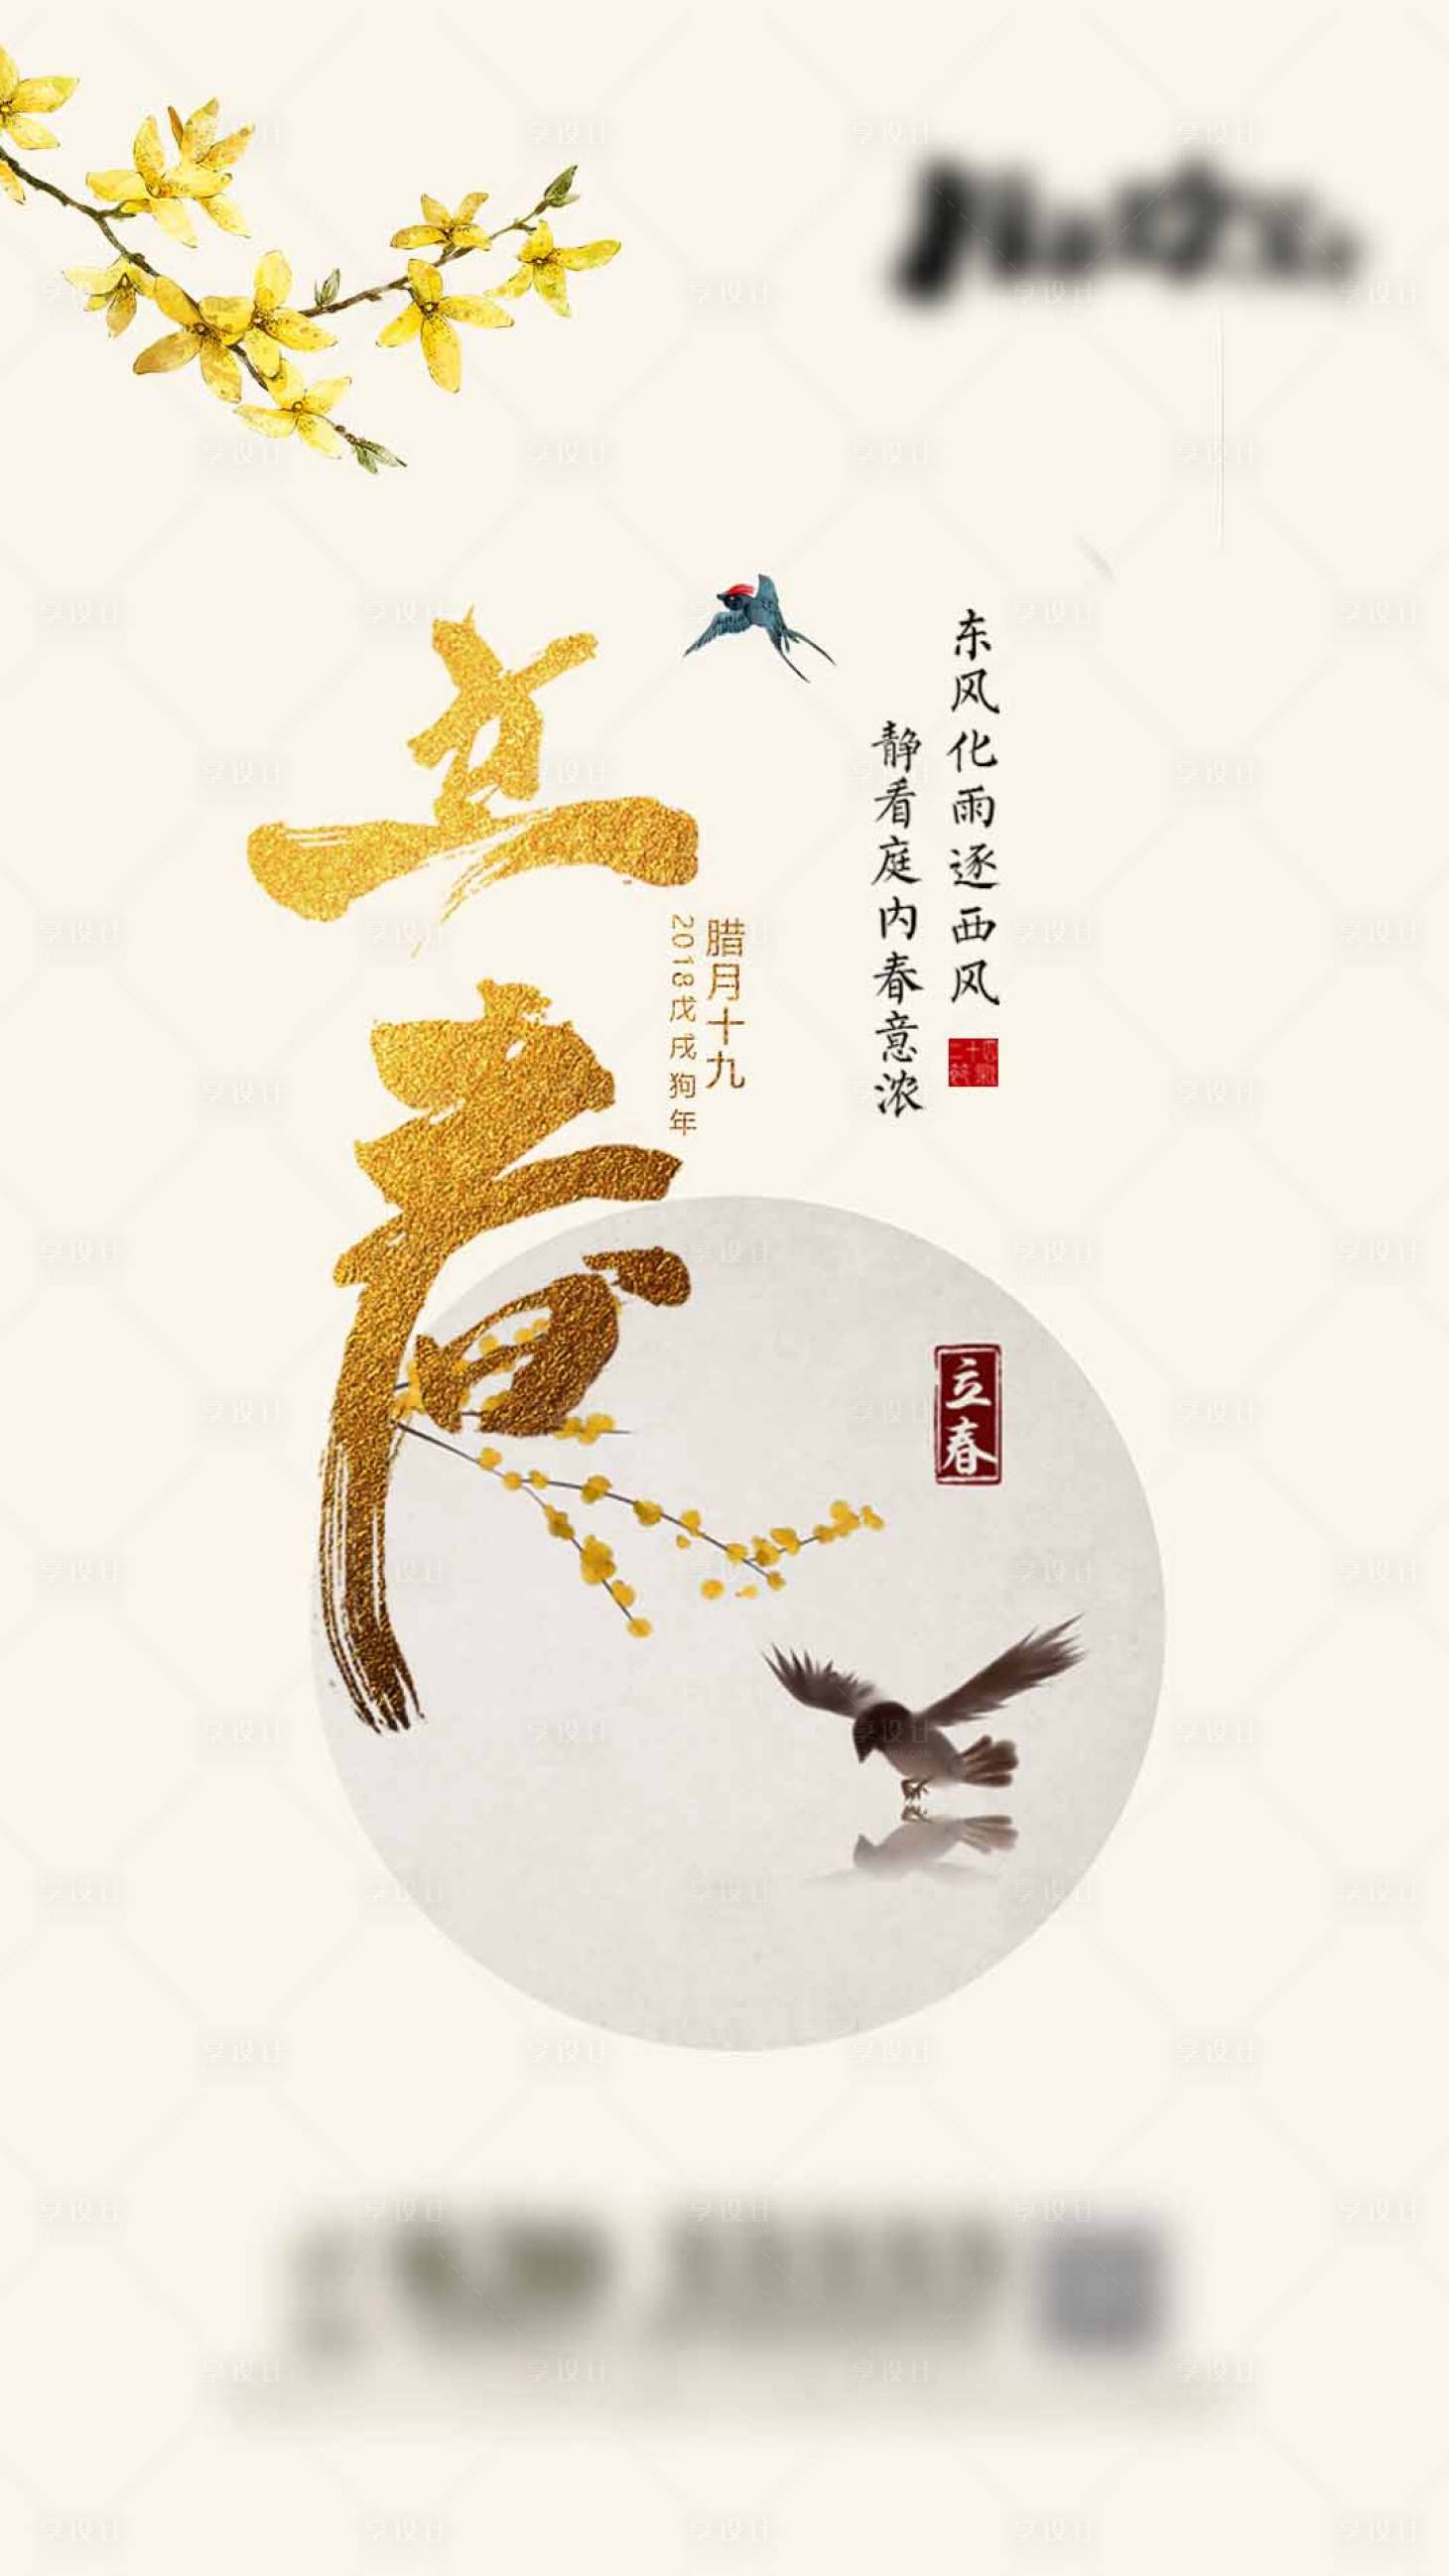 立春
东风化雨逐西风
静看庭内春意浓
腊月十九
2018戊戌狗年
二十四节气
立春
享设计